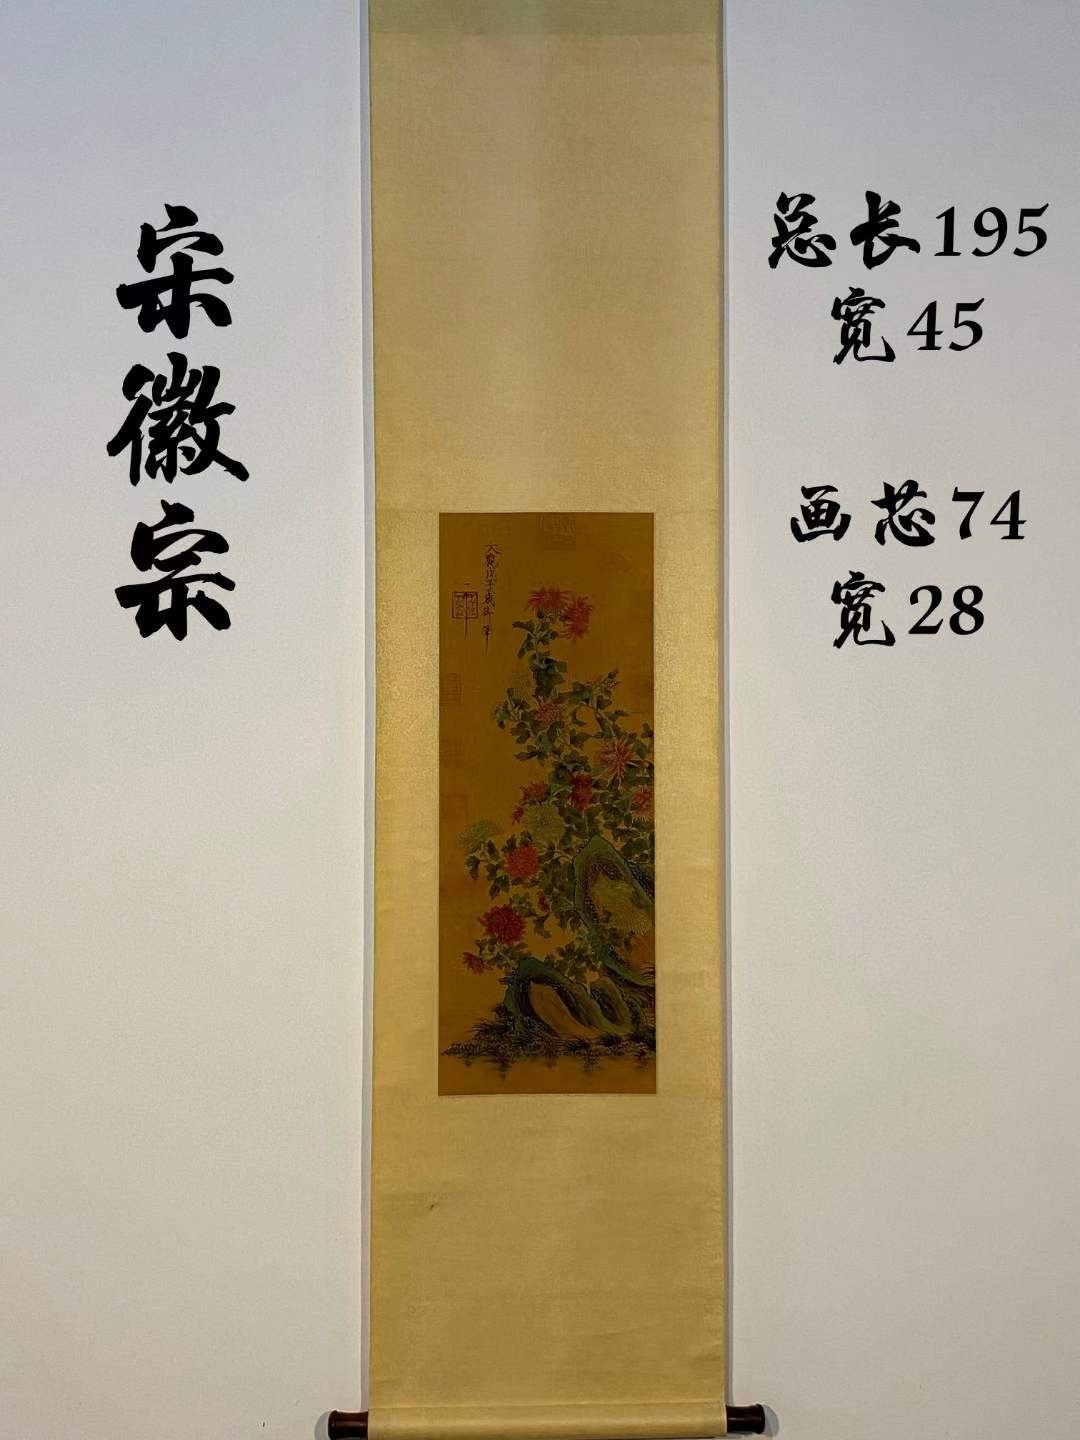 宋徽宗
总长195
宽45
画芯74
宽28